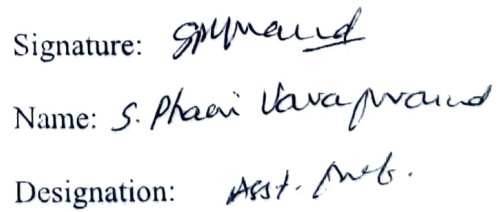 Signature:
Name: S. Phani Varaprasad
Designation: Asst. Prof.